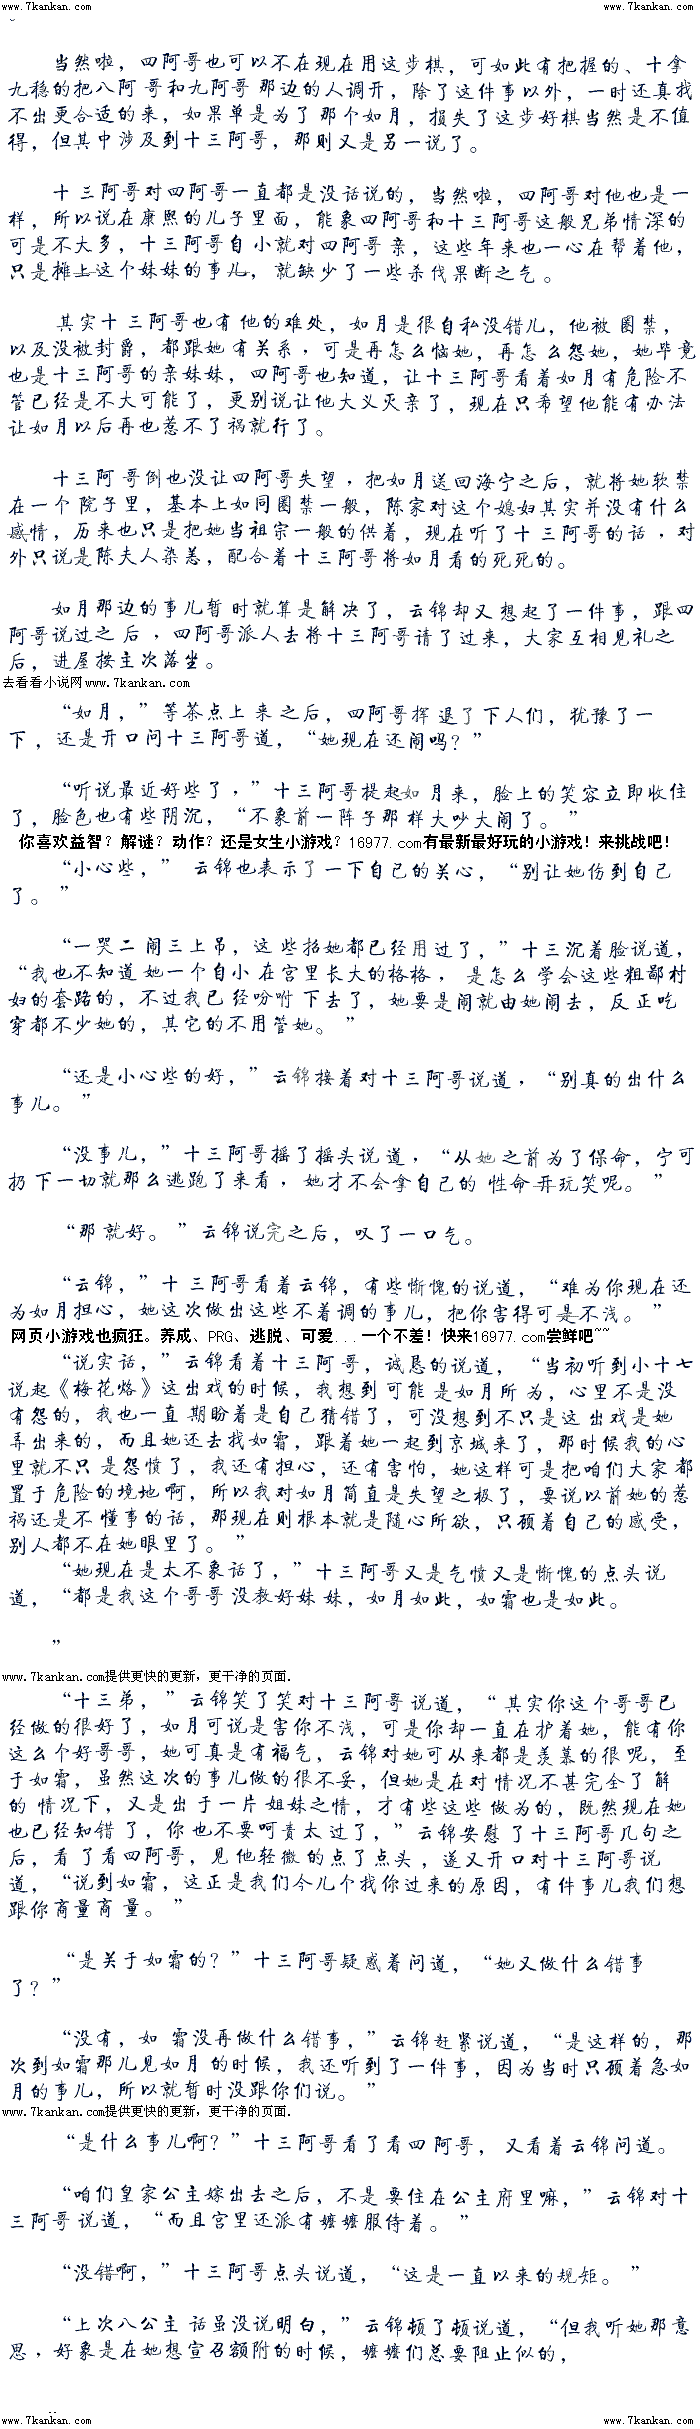 www.7kankan.com www.7kankan.com
当然啦，四阿哥也可以不在现在用这步棋，可如此有把握的、十拿
九稳的把八阿哥和九阿哥那边的人调开，除了这件事以外，一时还真找
不出更合适的来，如果单是为了那个如月，损失了这步好棋当然是不值
得，但其中涉及到十三阿哥，那则又是另一说了。
十三阿哥对四阿哥一直都是没话说的，当然啦，四阿哥对他也是一
样，所以说在康熙的儿子里面，能象四阿哥和十三阿哥这般兄弟情深的
可是不大多，十三阿哥自小就对四阿哥亲，这些年来也一心在帮着他，
只是摊上这个妹妹的事儿，就缺少了一些杀伐果断之气。
其实十三阿哥也有他的难处，如月是很自私没错儿，他被圈禁，
以及没被封爵，都跟她有关系，可是再怎么恼她，再怎么怨她，她毕竟
也是十三阿哥的亲妹妹，四阿哥也知道，让十三阿哥看着如月有危险不
管已经是不大可能了，更别说让他大义灭亲了，现在只希望他能有办法
让如月以后再也惹不了祸就行了。
十三阿哥倒也没让四阿哥失望，把如月送回海宁之后，就将她软禁
在一个院子里，基本上如同圈禁一般，陈家对这个媳妇其实并没有什么
感情，历来也只是把她当祖宗一般的供着，现在听了十三阿哥的话，对
外只说是陈夫人染恙，配合着十三阿哥将如月看的死死的。
如月那边的事儿暂时就算是解决了，云锦却又想起了一件事，跟四
阿哥说过之后，四阿哥派人去将十三阿哥请了过来，大家互相见礼之
后，进屋按主次落坐。
去看看小说网www.7kankan.com
“如月，”等茶点上来之后，四阿哥挥退了下人们，犹豫了一
下，还是开口问十三阿哥道，“她现在还闹吗？”
“听说最近好些了，”十三阿哥提起如月来，脸上的笑容立即收住
了，脸色也有些阴沉，“不象前一阵子那样大吵大闹了。”
你喜欢益智？解谜？动作？还是女生小游戏？16977.com有最新最好玩的小游戏！来挑战吧！
“小心些，”云锦也表示了一下自己的关心，“别让她伤到自己
了。”
“一哭二闹三上吊，这些招她都已经用过了，”十三沉着脸说道，
“我也不知道她一个自小在宫里长大的格格，是怎么学会这些粗鄙村
妇的套路的，不过我已经吩咐下去了，她要是闹就由她闹去，反正吃
穿都不少她的，其它的不用管她。”
“还是小心些的好，”云锦接着对十三阿哥说道，“别真的出什么
事儿。”
“没事儿，”十三阿哥摇了摇头说道，“从她之前为了保命，宁可
扔下一切就那么逃跑了来看，她才不会拿自己的性命开玩笑呢。”
“那就好。”云锦说完之后，叹了一口气。
“云锦，”十三阿哥看着云锦，有些惭愧的说道，“难为你现在还
为如月担心，她这次做出这些不着调的事儿，把你害得可是不浅。”
网页小游戏也疯狂。养成、PRG、逃脱、可爱...一个不差！快来16977.com尝鲜吧~~
“说实话，”云锦看着十三阿哥，诚恳的说道，“当初听到小十七
说起《梅花烙》这出戏的时候，我想到可能是如月所为，心里不是没
有怨的，我也一直期盼着是自己猜错了，可没想到不只是这出戏是她
弄出来的，而且她还去找如霜，跟着她一起到京城来了，那时候我的心
里就不只是怨愤了，我还有担心，还有害怕，她这样可是把咱们大家都
置于危险的境地啊，所以我对如月简直是失望之极了，要说以前她的惹
祸还是不懂事的话，那现在则根本就是随心所欲，只顾着自己的感受，
别人都不在她眼里了。”
“她现在是太不象话了，”十三阿哥又是气愤又是惭愧的点头说
道，“都是我这个哥哥没教好妹妹，如月如此，如霜也是如此。
”
www.7kankan.com提供更快的更新，更干净的页面.
“十三弟，”云锦笑了笑对十三阿哥说道，“其实你这个哥哥已
经做的很好了，如月可说是害你不浅，可是你却一直在护着她，能有你
这么个好哥哥，她可真是有福气，云锦对她可从来都是羡慕的很呢，至
于如霜，虽然这次的事儿做的很不妥，但她是在对情况不甚完全了解
的情况下，又是出于一片姐妹之情，才有些这些做为的，既然现在她
也已经知错了，你也不要呵责太过了，”云锦安慰了十三阿哥几句之
后，看了看四阿哥，见他轻微的点了点头，遂又开口对十三阿哥说
道，“说到如霜，这正是我们今儿个找你过来的原因，有件事儿我们想
跟你商量商量。”
“是关于如霜的？”十三阿哥疑惑着问道，“她又做什么错事
了？”
“没有，如霜没再做什么错事，”云锦赶紧说道，“是这样的，那
次到如霜那儿见如月的时候，我还听到了一件事，因为当时只顾着急如
月的事儿，所以就暂时没跟你们说。”
www.7kankan.com提供更快的更新，更干净的页面.
“是什么事儿啊？”十三阿哥看了看四阿哥，又看着云锦问道。
“咱们皇家公主嫁出去之后，不是要住在公主府里嘛，”云锦对十
三阿哥说道，“而且宫里还派有嬷嬷服侍着。”
“没错啊，”十三阿哥点头说道，“这是一直以来的规矩。”
“上次八公主话虽没说明白，”云锦顿了顿说道，“但我听她那意
思，好象是在她想宣召额附的时候，嬷嬷们总要阻止似的，
www.7kankan.com www.7kankan.com